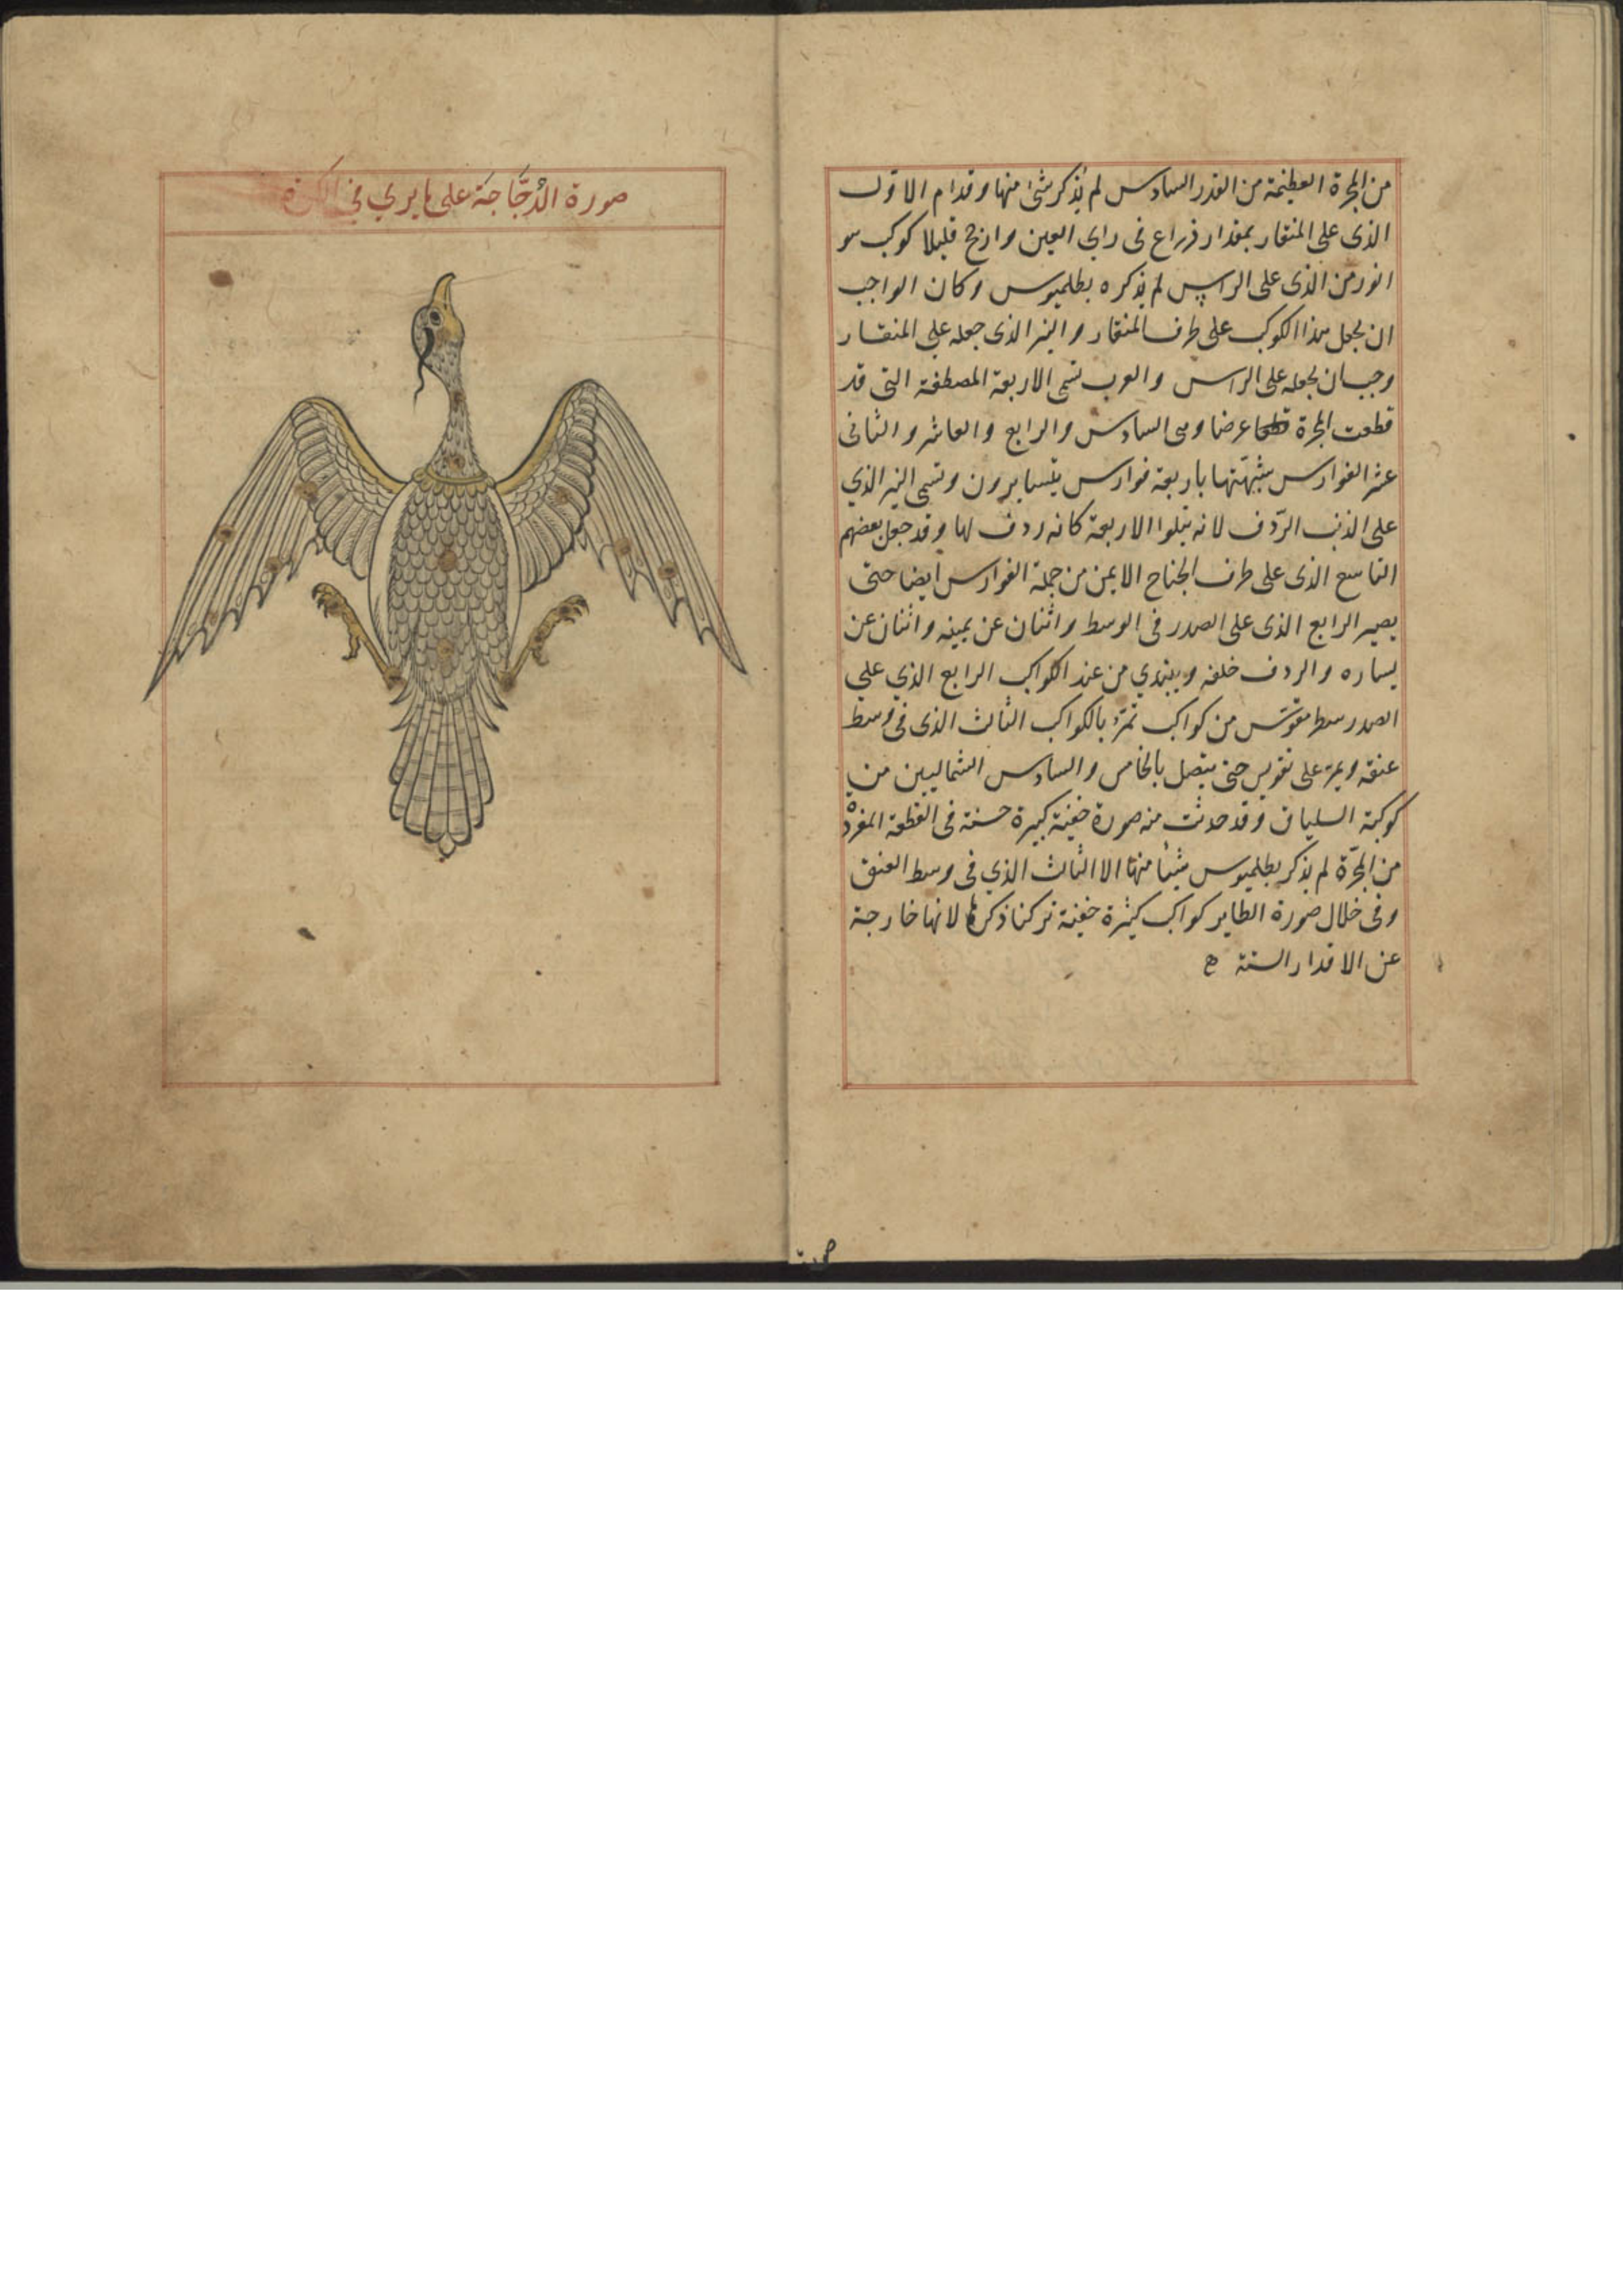 من المجرة العظيمة من القدر السادس لم يذكر شئ منها وقدام الاول
الذى على المنقار بمقدار ذراع فى راى العين وارجح قليلا كوكب هو
انور من الذى على الراس لم يذكره بطلميوس وكان الواجب
ان يجعل هذا الكوكب على طرف المنقار والنير الذى جعله على المنقار
وجب ان يجعله على الراس والعرب تسمى الاربعة المصطفة التى قد
قطعت المجرة عرضا وهى السادس والرابع والعاشر والثانى
عشر الفوارس شبهتها باربعة فوارس يتسايرون وتسمى النير الذي
على الذنب الرّدف لانه يتلوا الاربعة كانه ردف لها وقد جعل بعضهم
التاسع الذى على طرف الجناح الايمن من جملة الفوارس ايضا حتى
يصير الرابع الذى على الصدر فى الوسط واثنان عن يمينه واثنان عن
يساره والردف خلفه ويبتدي من عند الكواكب الرابع الذي علي
الصدر سطر مقوّس من كواكب تمرّ بالكواكب الثالث الذى فى وسط
عنقه ويمرّ على تقويس حتى يتصل بالخامس والسادس الشماليين من
كوكبة السلياق وقد حدثت منه صورة خفية كبيرة حسنة فى القطعة المفردة
من المجرّة لم يذكر بطلميوس شيئا منها الا الثالث الذي فى وسط العنق
وفى خلال صورة الطاير كواكب كثيرة خفية تركنا ذكرها لانها خارجة
عن الاقدار الستة
صورة
صورة الدُّجَاجَة على مايري في الكرة